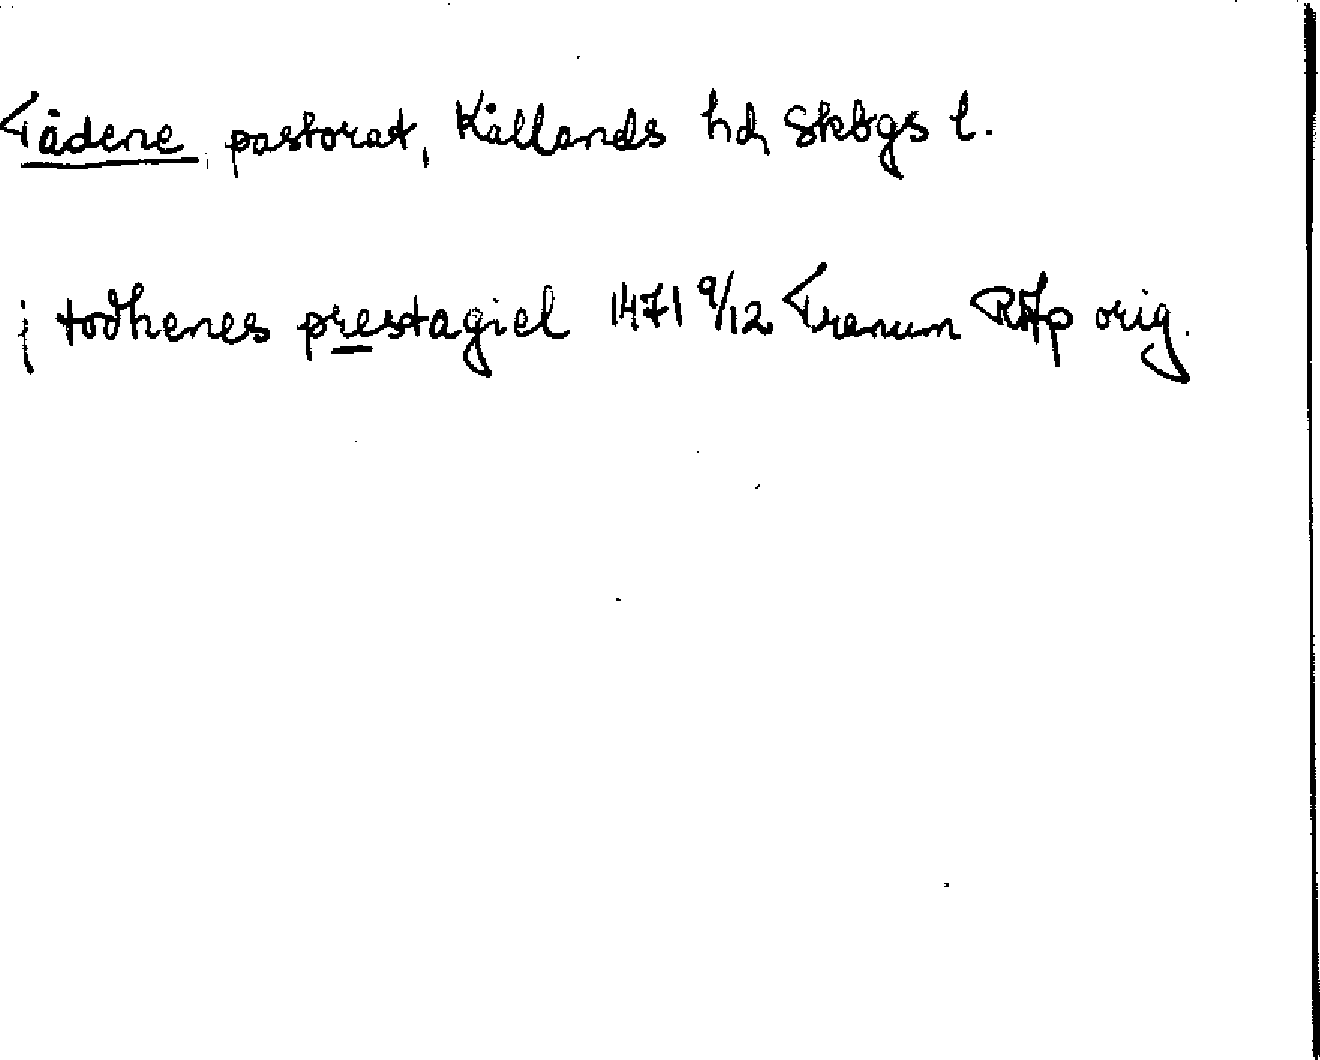 Tådene pastorat, Kållands hd, Skbgs l.
j todhenes prestagiel 1471 9/12 Tranum RAp orig.